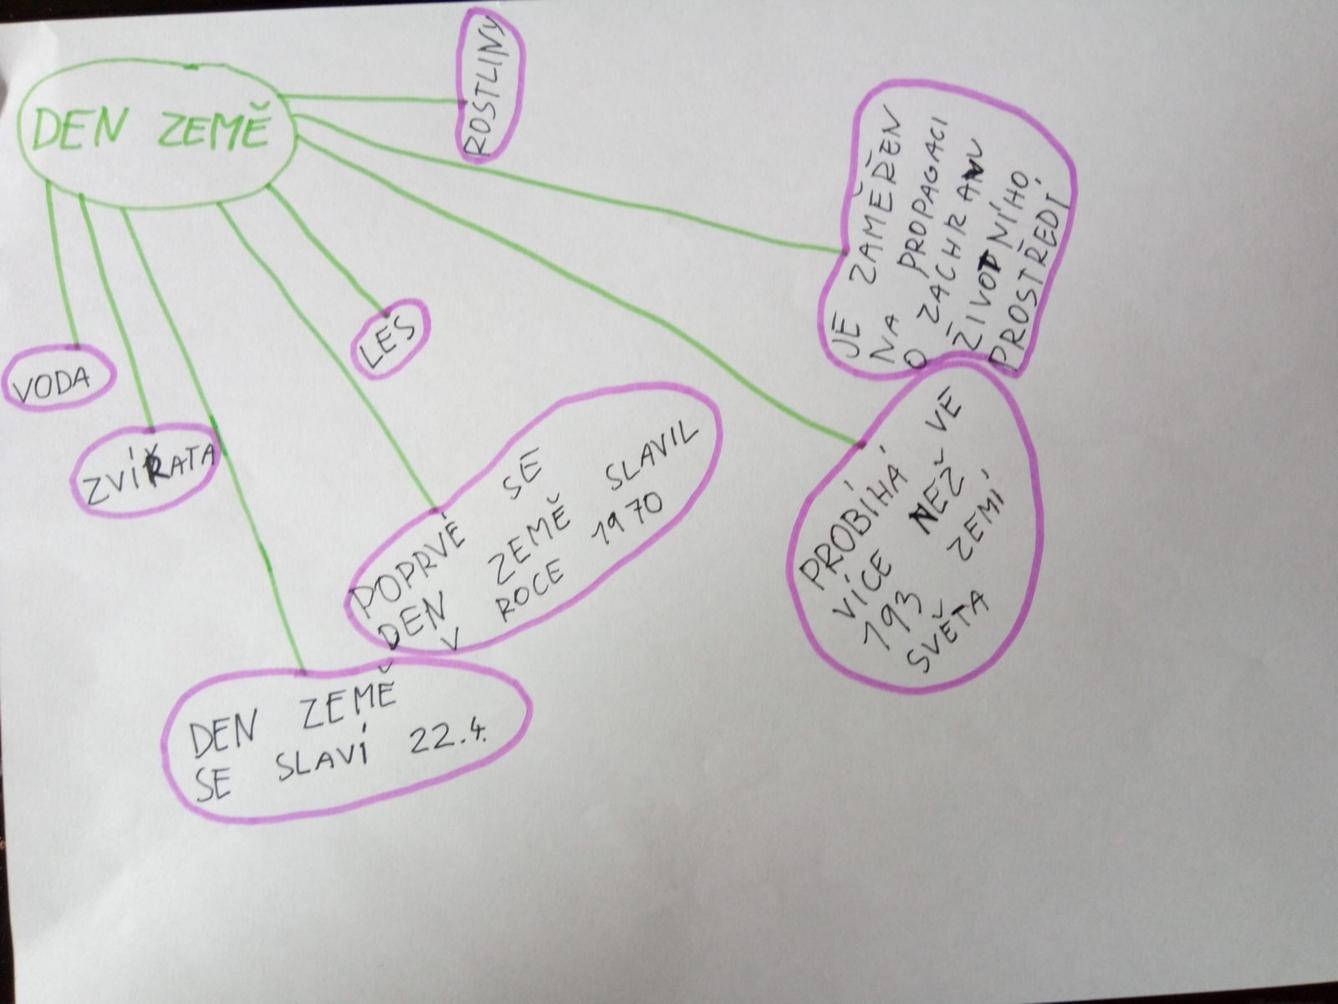 DEN ZEMĚ
ROSTLINY
JE ZAMĚŘEN
NA PROPAGACI
O ZÁCHRANU
ŽIVOTNÍHO
PROSTŘEDÍ
LES
VODA
ZVÍŘATA
POPRVÉ SE
DEN ZEMĚ SLAVIL
V ROCE 1970
PROBÍHÁ
VÍCE NEŽ VE
193 ZEMÍ
SVĚTA
DEN ZEMĚ
SE SLAVÍ 22.4.